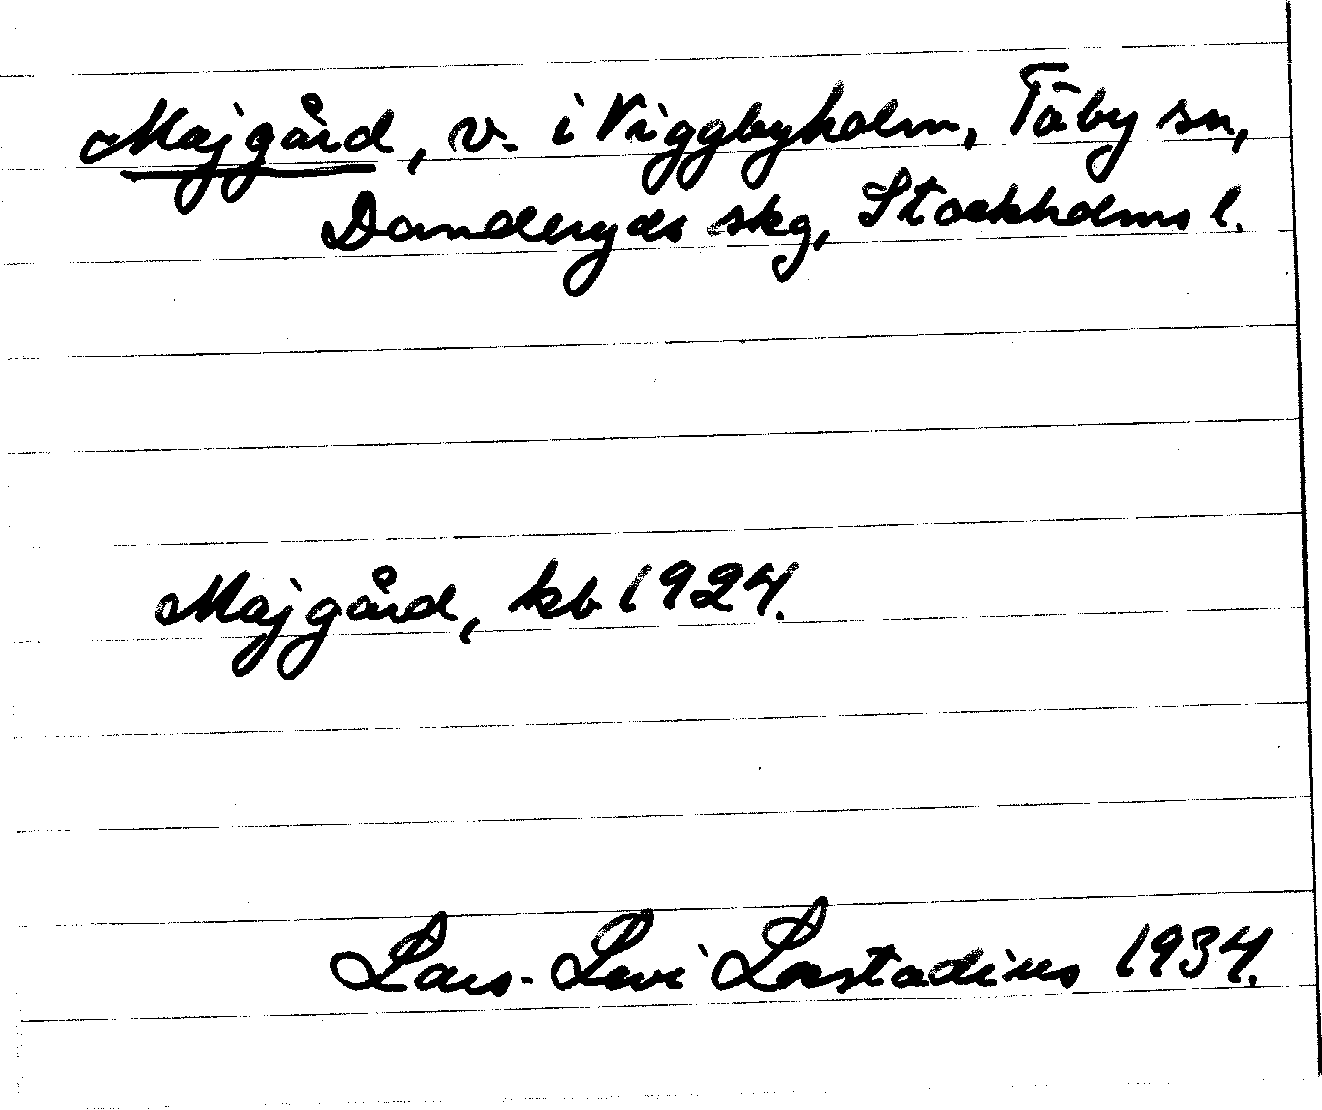 Majgård, v. i Viggbyholm, Täby sn,
Danderyds skg, Stockholms l.
Majgård, kb 1924.
Lars-Levi Læstadius 1934.